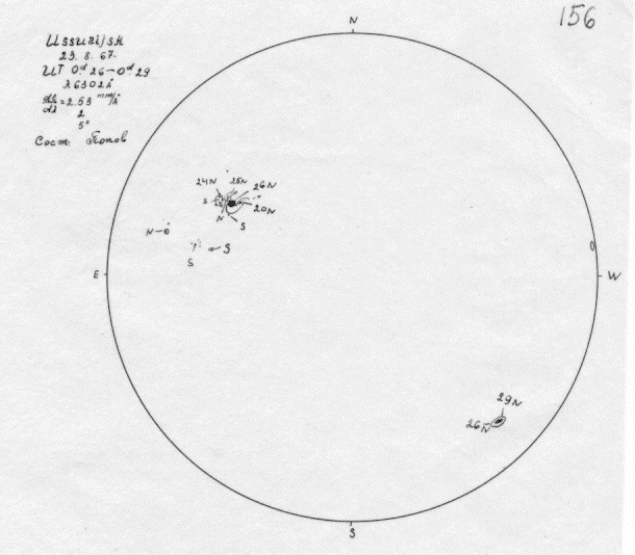 156
N
Ussurijsk
23. 8. 67.
UT 0ᵈ.26–0ᵈ.29
λ6302Å
dl/dλ = 2.53 mm/Å
2
5ˢ
Сост. Попов
24N 25N 26N
S
20N
N S
N
S
S
E
W
29N
26N
S